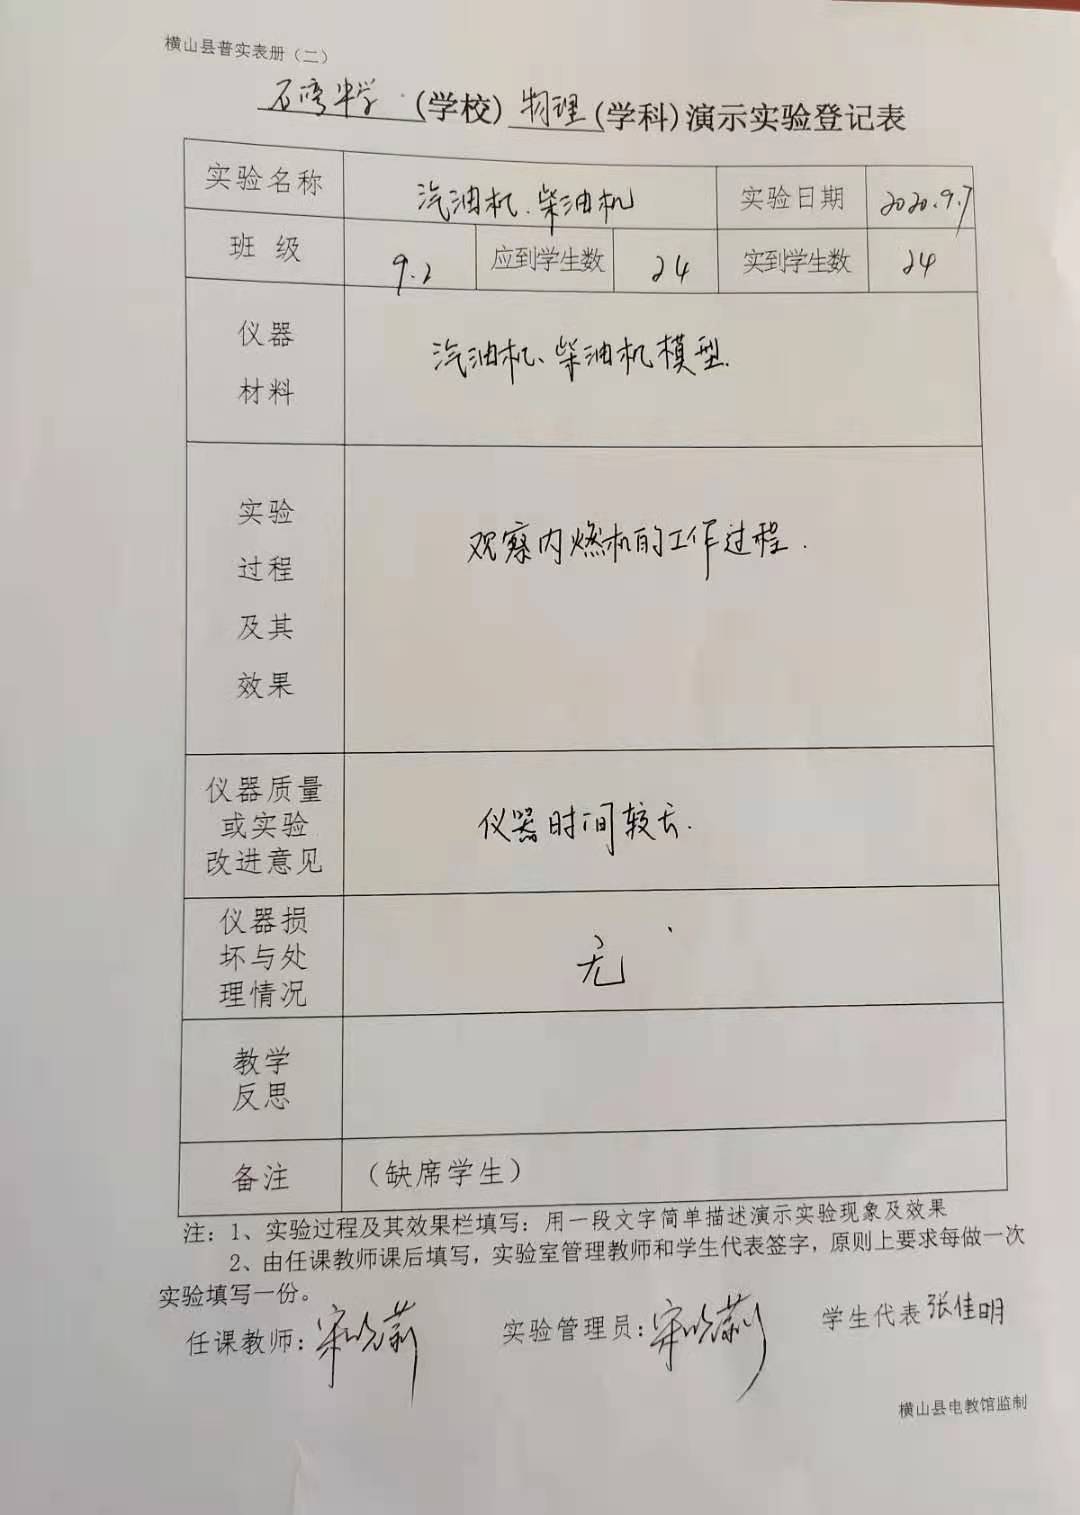 横山县普实表册（二）
石湾中学（学校）物理（学科）演示实验登记表
实验名称 汽油机、柴油机 实验日期 2020.9.7
班 级 9.2 应到学生数 24 实到学生数 24
仪器 汽油机、柴油机模型.
材料
实验 观察内燃机的工作过程.
过程
及其
效果
仪器质量
或实验 仪器时间较长.
改进意见
仪器损
坏与处 无
理情况
教学
反思
备注 （缺席学生）
注：1、实验过程及其效果栏填写：用一段文字简单描述演示实验现象及效果
2、由任课教师课后填写，实验室管理教师和学生代表签字，原则上要求每做一次
实验填写一份。
任课教师： 实验管理员： 学生代表 张佳明
横山县电教馆监制